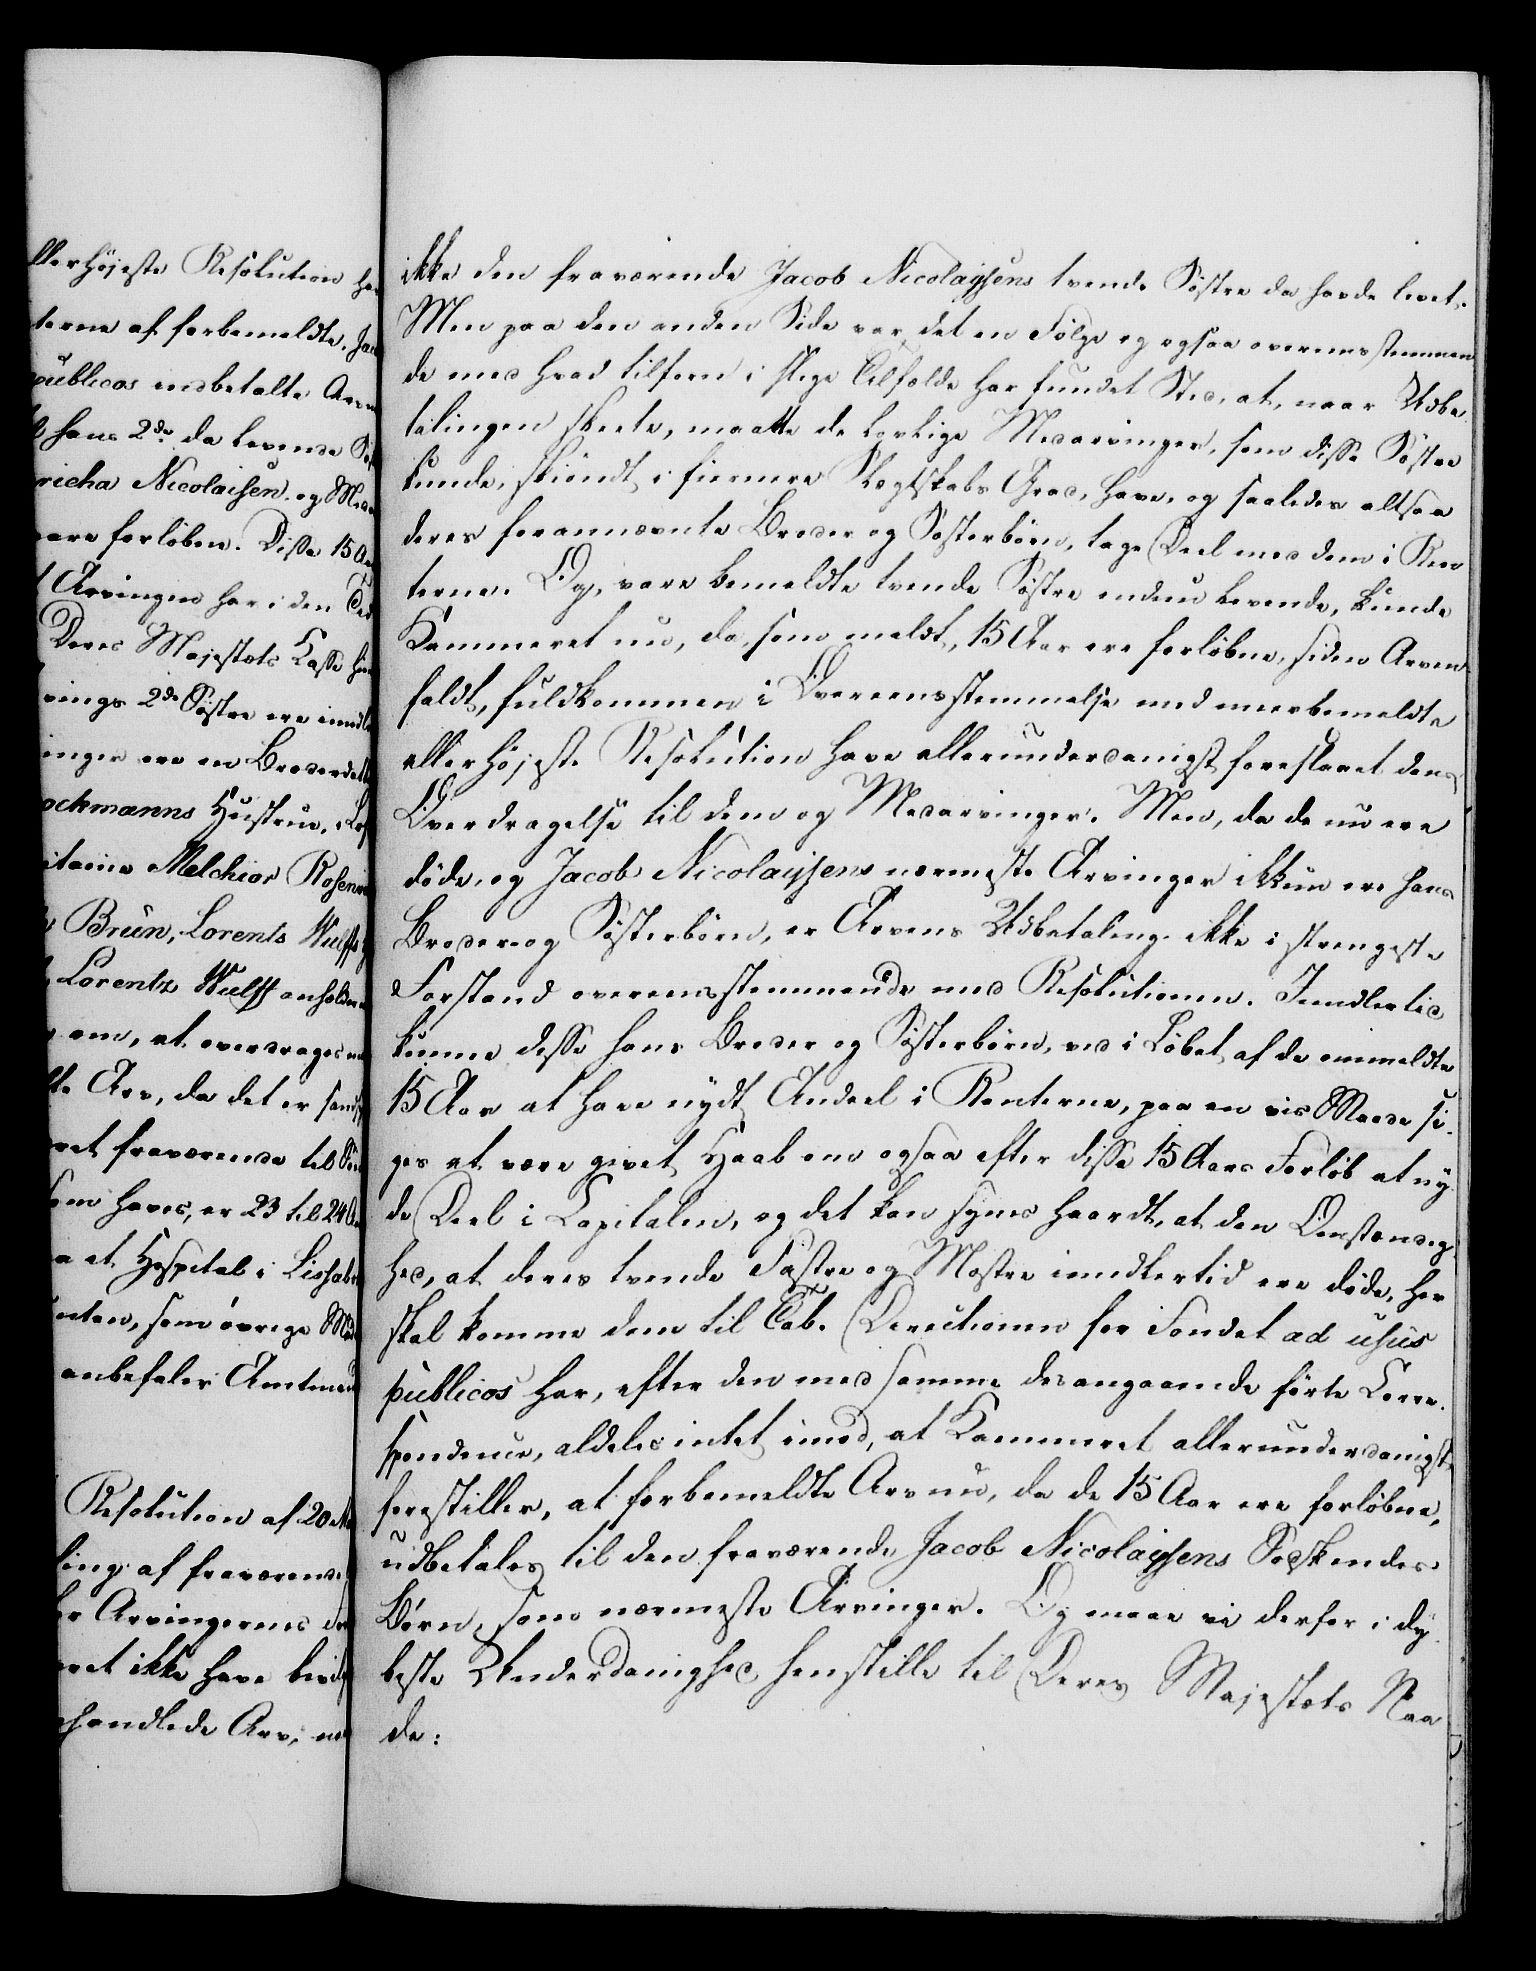 llerhöjeste Resolution ha
terne af forbemeldte Jac
publicos indbetalte Arv
hans 2de da levende Sø
richa Nicolaisen og Med
vare forløben. Disse 15 Aa
Arvingen har i den Tid
Deres Majestæts Kasse
vings 2de Søstre ere imidle
inger ere en Broderdatte
ochmanns Hustrue,
itaine Melchior Rosen
Brun, Lorents Wulff
Lorentz Wulff anholde
om, at overdrages
te Arv, da det er
ret fraværende til
som haves, er 23 til 24 A
a et Hospital i Lissab
som øvrige
anbefaler Amtmand
Resolution af 20
ling af fraværende
Arvingernes
ret ikke have
handlede Arv,
ikke den fraværende Jacob Nicolaysens tvende Søstre da havde levet.
Men paa den anden Side var det en Følge og ogsaa overensstemmen
de med hvad tilforn i slige Tilfælde har fundet Sted, at, naar Udbe
talingen skeete, maatte de lovlige Medarvinger, som disse Søstre
kunde, skiøndt i fiernere Slægtskabs Grad, have, og saaledes altsaa
deres forannævnte Broder og Søsterbørn, tage Deel med dem i Ren
terne. Og, vare bemeldte tvende Søstre endnu levende, kunde
Kammeret nu, da, som meldt, 15 Aar ere forløbne, siden Arven
faldt, fuldkommen i Overeensstemmelse med meerbemeldte
allerhöjeste Resolution have allerunderdanigst foreslaaet dens
Overdragelse til dem og Medarvinger. Men, da de nu ere
døde, og Jacob Nicolaysens nærmeste Arvinger ikkun ere hans
Broder og Søsterbørn, er Arvens Udbetaling ikke i strengeste
Forstand overeensstemmende med Resolutionen. Imidlertid
kunne disse hans Broder og Søsterbørn, ved i Løbet af de ommeldte
15 Aar at have nydt Andeel i Renterne, paa en vis Maade si
ges at være givet Haab om ogsaa efter disse 15 Aars Forløb at ny
de Deel i Capitalen, og det kan synes haardt, at den Omstændig
hed, at deres tvende Fastre og Mostre imidlertid ere døde, her
skal komme dem til Tab. Directionen for Fondet ad usus
publicos har, efter den med samme desangaaende førte Corre
spondence, aldeles intet imod, at Kammeret allerunderdanigst
forestiller, at forbemeldte Arv nu, da de 15 Aar ere forløbne,
udbetales til den fraværende Jacob Nicolaysens Sødskendes
Børn, som nærmeste Arvinger. Og maae vi derfor i dy
beste Underdanighed henstille til Deres Majestæts Naa
de: